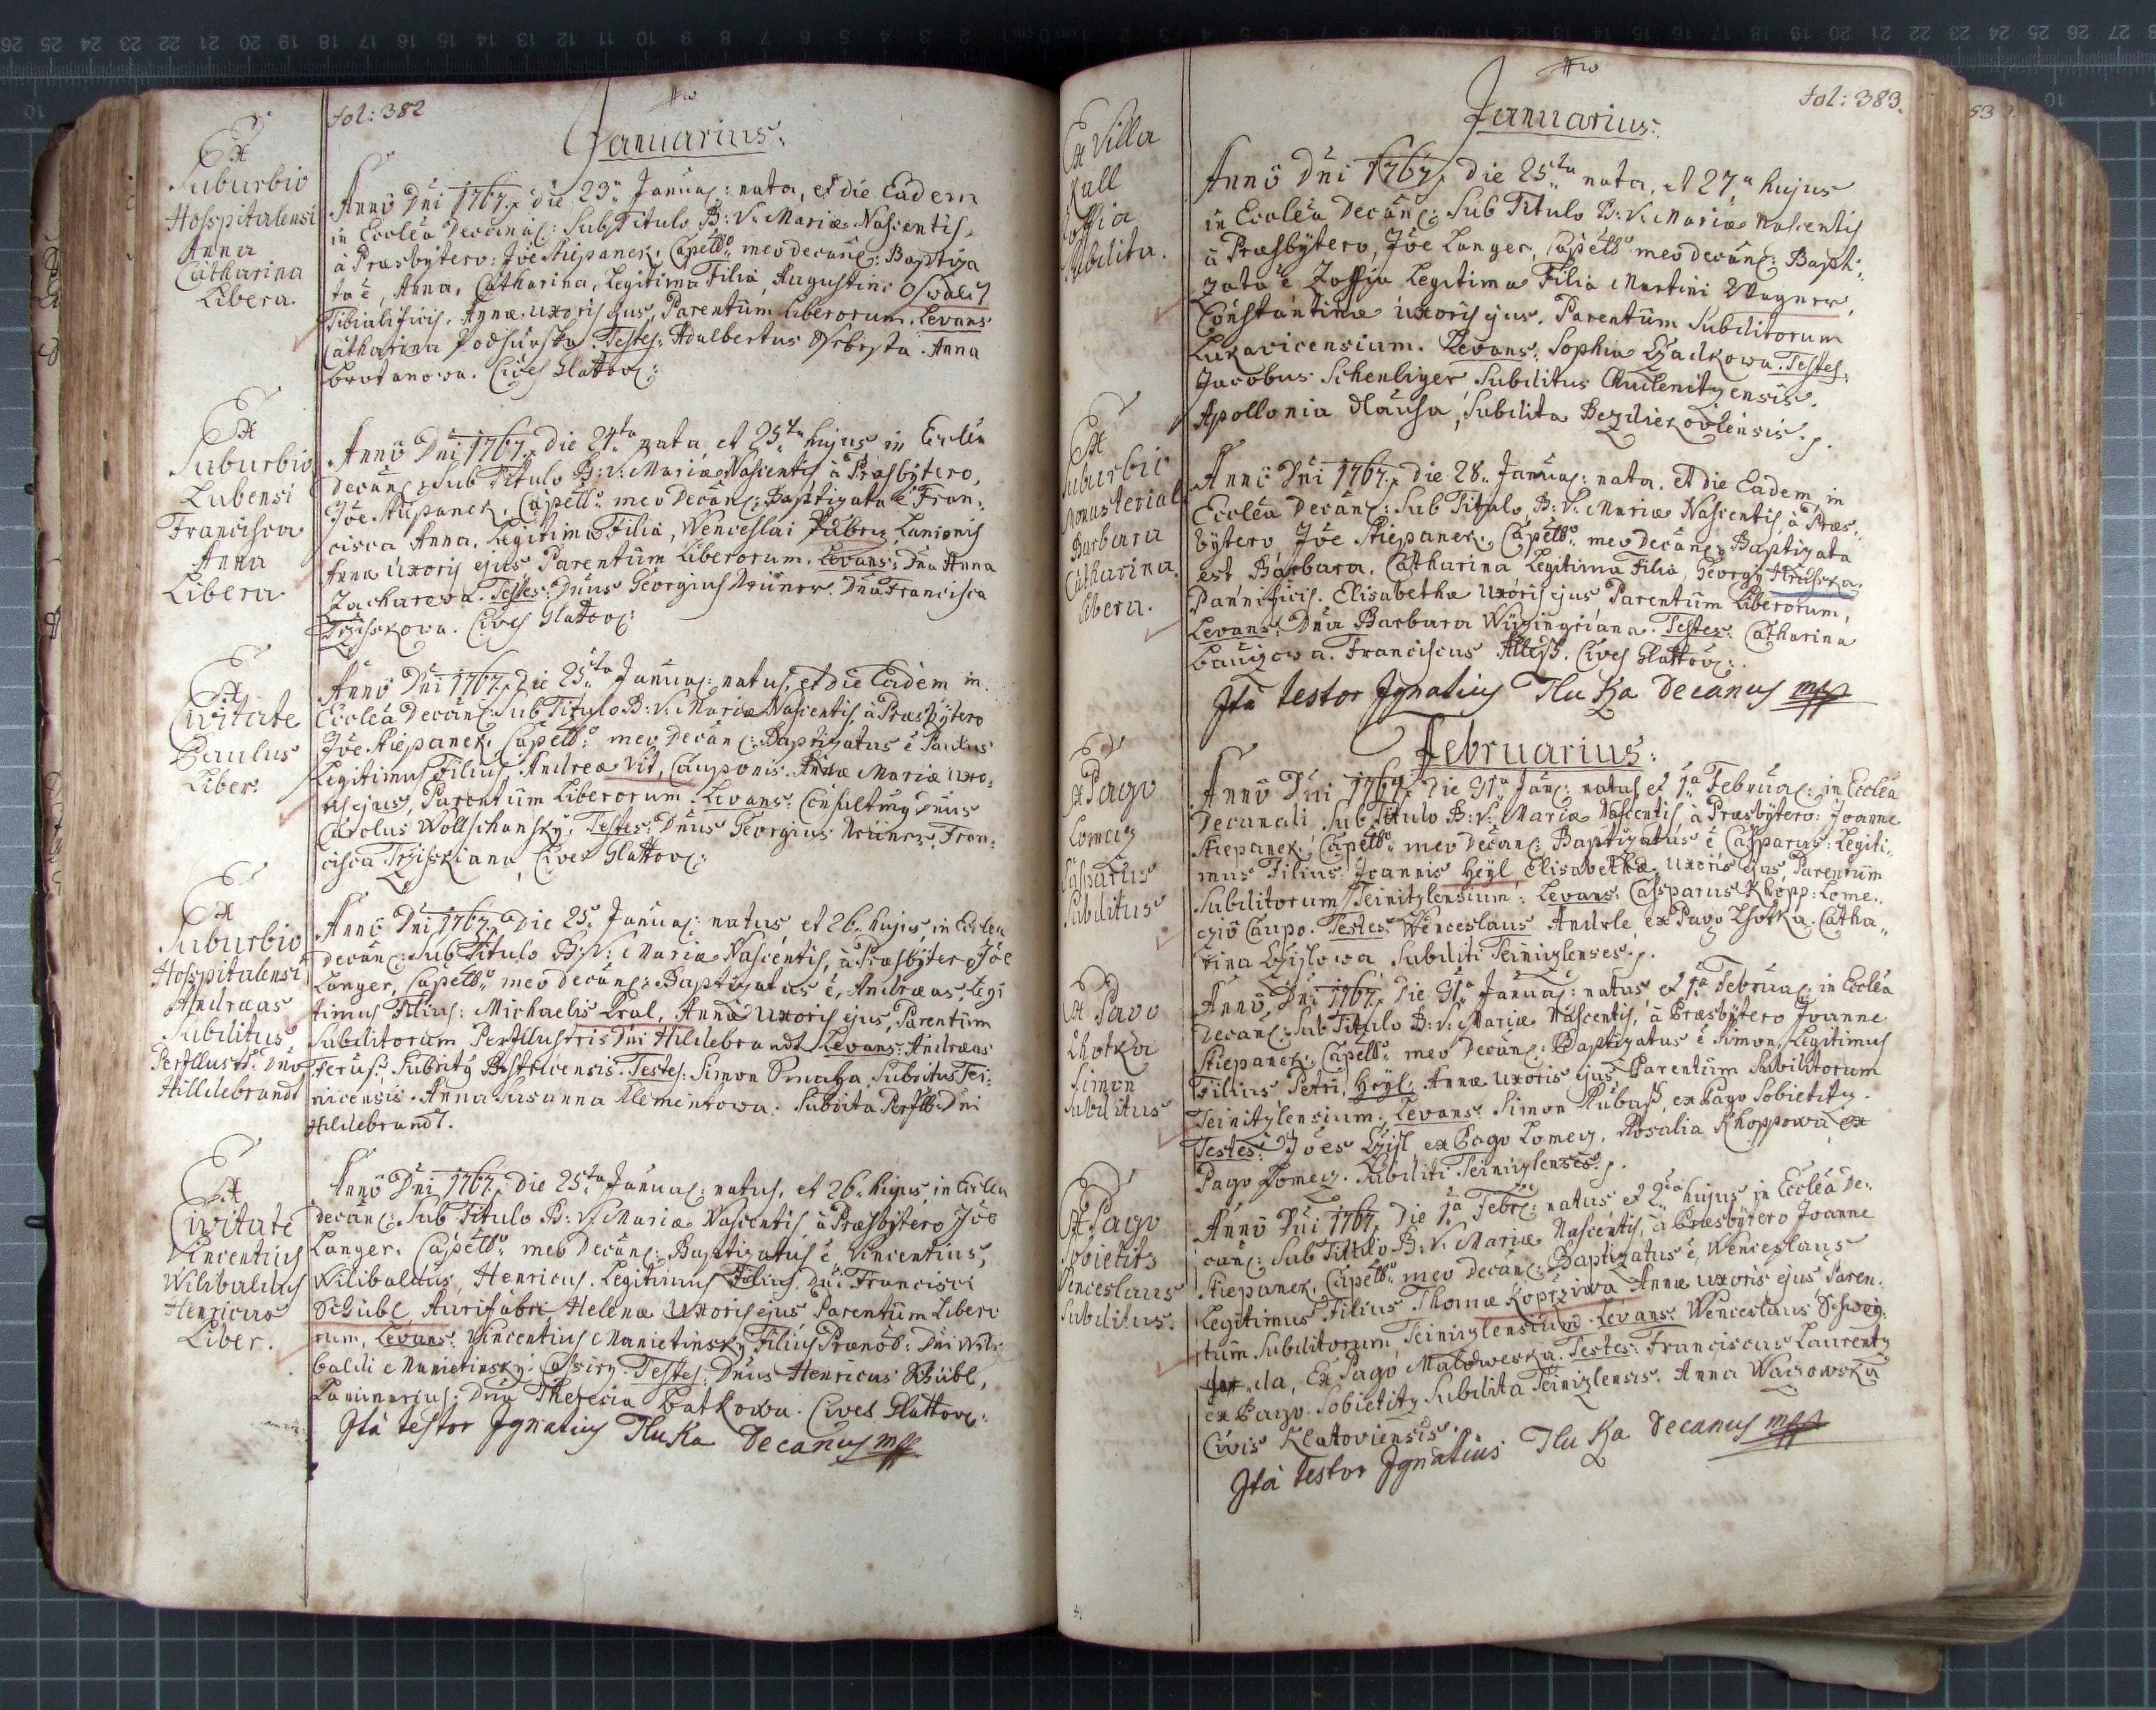 fol: 382
Januarius:
Ex
Suburbio
Hosspitalensi
Anna
Catharina
Libera.
Anno Dni 1767. die 23. Januar: nata, et die Eadem
in Ecclea Decanal: Sub Titulo B: V. Mariæ Nascentis,
à Præsbytero: Joe Stiepanek, Capello meo Decanal: Baptiza
ta e, Anna, Catharina, Legitima Filia, Augustini Oswaldt
Tibialificis, Annæ uxoris ejus, Parentum Liberorum. Levans
Catharina Testes: Adalbertus Anna
Civis Glattov:
Ex
Suburbio
Lubensi
Francisca
Anna
Libera
Anno Dni 1767. die 24ta nata, et 25ta hujus in Ecclea
Decanal: Sub Titulo B: V. Mariæ Nascentis à Præsbytero,
Joe Stiepanek, Capello meo Decanal: Baptizata e Fran-
cisca Anna, Legitima Filia, Wenceslai Lanionis
Annæ Uxoris ejus Parentum Liberorum. Levans: Dna Anna
Zacharowa. Testes: Dnus Georgius Dna Francisca
Cives Glattov:
Ex
Civitate
Paulus
Liber.
Anno Dni 1767. Die 25ta Januar: natus, et die Eadem in
Ecclea Decanal: Sub Titulo B: V. Mariæ Nascentis, à Præsbytero
Joe Stiepanek, Capello meo Decanal: Baptizatus e Paulus
Legitimus Filius Andreæ Vit, Cauponis. Annæ Mariæ uxo-
ris ejus, Parentum Liberorum. Levans: Dnus
Carolus Wollschansky. Testes: Dnus Georgius Fran-
cisca Cives Glattov:
Ex
Suburbio
Hosspitalensi
Andræas
Subditus
Perillust: Dno
Hilldebrandt
Anno Dni 1767. Die 25. Januar: natus, et 26. hujus, in Ecclea
Decanal: Sub Titulo B: V. Mariæ Nascentis, à Præsbytero Joe
Langer, Capello meo Decanal: Baptizatus e, Andræas, Legi
timus Filius: Michaelis Kral, Annæ Uxoris ejus, Parentum
Subditorum Perillustris Dni Hildebrandt. Levans: Andræas
Bistricensis. Testes: Simon Smaha, Subditus Tei-
nicensis. Anna Susanna Klementowa. Subdita Perill: Dni
Hildebrandt.
Ex
Civitate
Vincentius
Wilibaldus
Henricus
Liber.
Anno Dni 1767. Die 25ta Januar: natus, et 26. hujus in Ecclea
Decanal: Sub Titulo B: V. Mariæ Nascentis, à Præsbytero Joe
Langer. Capello meo Decanal: Baptizatus e Vincentius,
Wilibaldus, Henricus. Legitimus Filius Dni Francisci
Schübl, Aurifabri, Helenæ Uxoris ejus, Parentum Libero
rum, Levans: Vincentius Manietinsky Filius Prænob: Dni Wili-
baldi Manietinsky. Testes: Dnus Henricus Schübl,
Dna Theresia Batkowa. Cives Glattov:
Ita testor Ignatius Tluka Decanus mpp
fol: 383.
Januarius:
Ex Villa
Kall
Zoffia
Subdita.
Anno Dni 1767. Die 25ta nata, et 27a hujus
in Ecclea Decanal: Sub Titulo B: V. Mariæ Nascentis
à Præsbytero, Joe Langer, Capello meo Decanal: Bapti-
zata e Zoffia Legitima Filia Martini Wagner,
Constantinæ uxoris ejus. Parentum Subditorum
Lukavicensium. Levans: Sophia Testes:
Jacobus Schenliger Subditus
Apollonia Subdita
Ex
Suburbio
Monasterial
Barbara
Catharina
Libera.
Anno Dni 1767. Die 28. Januar: nata, et die Eadem, in
Ecclea Decanal: Sub Titulo B: V. Mariæ Nascentis à Præs-
bytero Joe Stiepanek, Capello meo Decanal: Baptizata
est, Barbara, Catharina Legitima Filia, Georgij Hruska
Pannificis. Elisabethæ Uxoris ejus Parentum Liberorum,
Levans: Dna Barbara Testes: Catharina
Franciscus Cives Glattov:
Ita testor Ignatius Tluka Decanus mpp
Februarius:
Ex Pago
Lomcz
Casparus
Subditus
Anno Dni 1767. Die 31a Jan: natus, et 1a Februar: in Ecclea
Decanali, Sub Titulo B: V. Mariæ Nascentis, à Præsbytero: Joanne
Stiepanek, Capello meo Decanal: Baptizatus e Casparus: Legiti-
mus Filius: Joannis Heyl, Elisabethæ uxoris ejus, Parentum
Subditorum Teinitzlensium. Levans: Casparus Khopp: Lome-
czio Caupo. Testes: Wenceslaus Andrle, ex Pago Lhotka. Catha-
rina Subditi Teinizlenses.
Ex Pago
Lhotka
Simon
Subditus
Anno Dni 1767. Die 31a Januar: natus, et 1a Februar: in Ecclea
Decanal: Sub Titulo B: V. Mariæ Nascentis, à Præsbytero Joanne
Stiepanek, Capello meo Decanal: Baptizatus e Simon, Legitimus
Filius, Petri, Heyl, Annæ uxoris ejus, Parentum Subditorum
Teinitzlensium, Levans: Simon ex Pago Sobietitz.
Testes: Joes ex Pago Lomcz, Rosalia Khoppowa, ex
Pago Lomcz. Subditi Teinizlenses.
Ex Pago
Sobietits
Wenceslaus
Subditus.
Anno Dni 1767. Die 1a Febr: natus et 2da hujus in Ecclea De-
canal: Sub Titulo B: V. Mariæ Nascentis, à Præsbytero Joanne
Stiepanek, Capello meo Decanal: Baptizatus e, Wenceslaus
Legitimus Filius Thomæ Koprziwa Annæ uxoris ejus Paren-
tum Subditorum, Teinizlensium. Levans: Wenceslaus
Ex Pago Maloweska. Testes: Franciscus Laurentz
ex Pago Sobietitz Subdita Teinizlensis. Anna
Civis Klatoviensis.
Ita testor Ignatius Tluka Decanus mpp